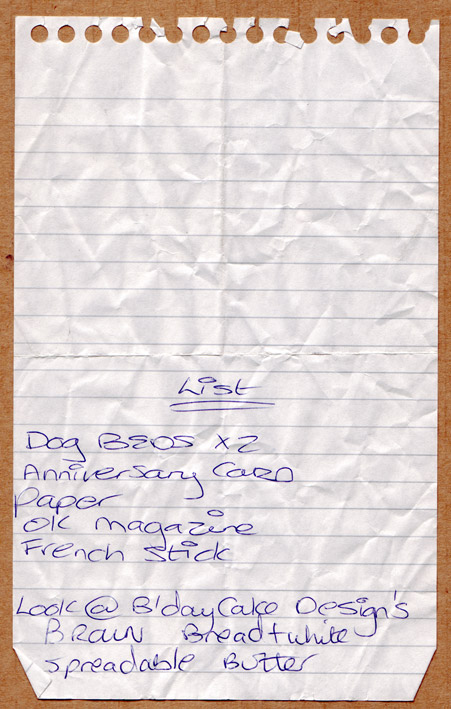 List
Dog BEDS x 2
Anniversary CARD
paper
OK magazine
French stick
Look @ B'day Cake Design's
BRAUN Bread + white
spreadable Butter